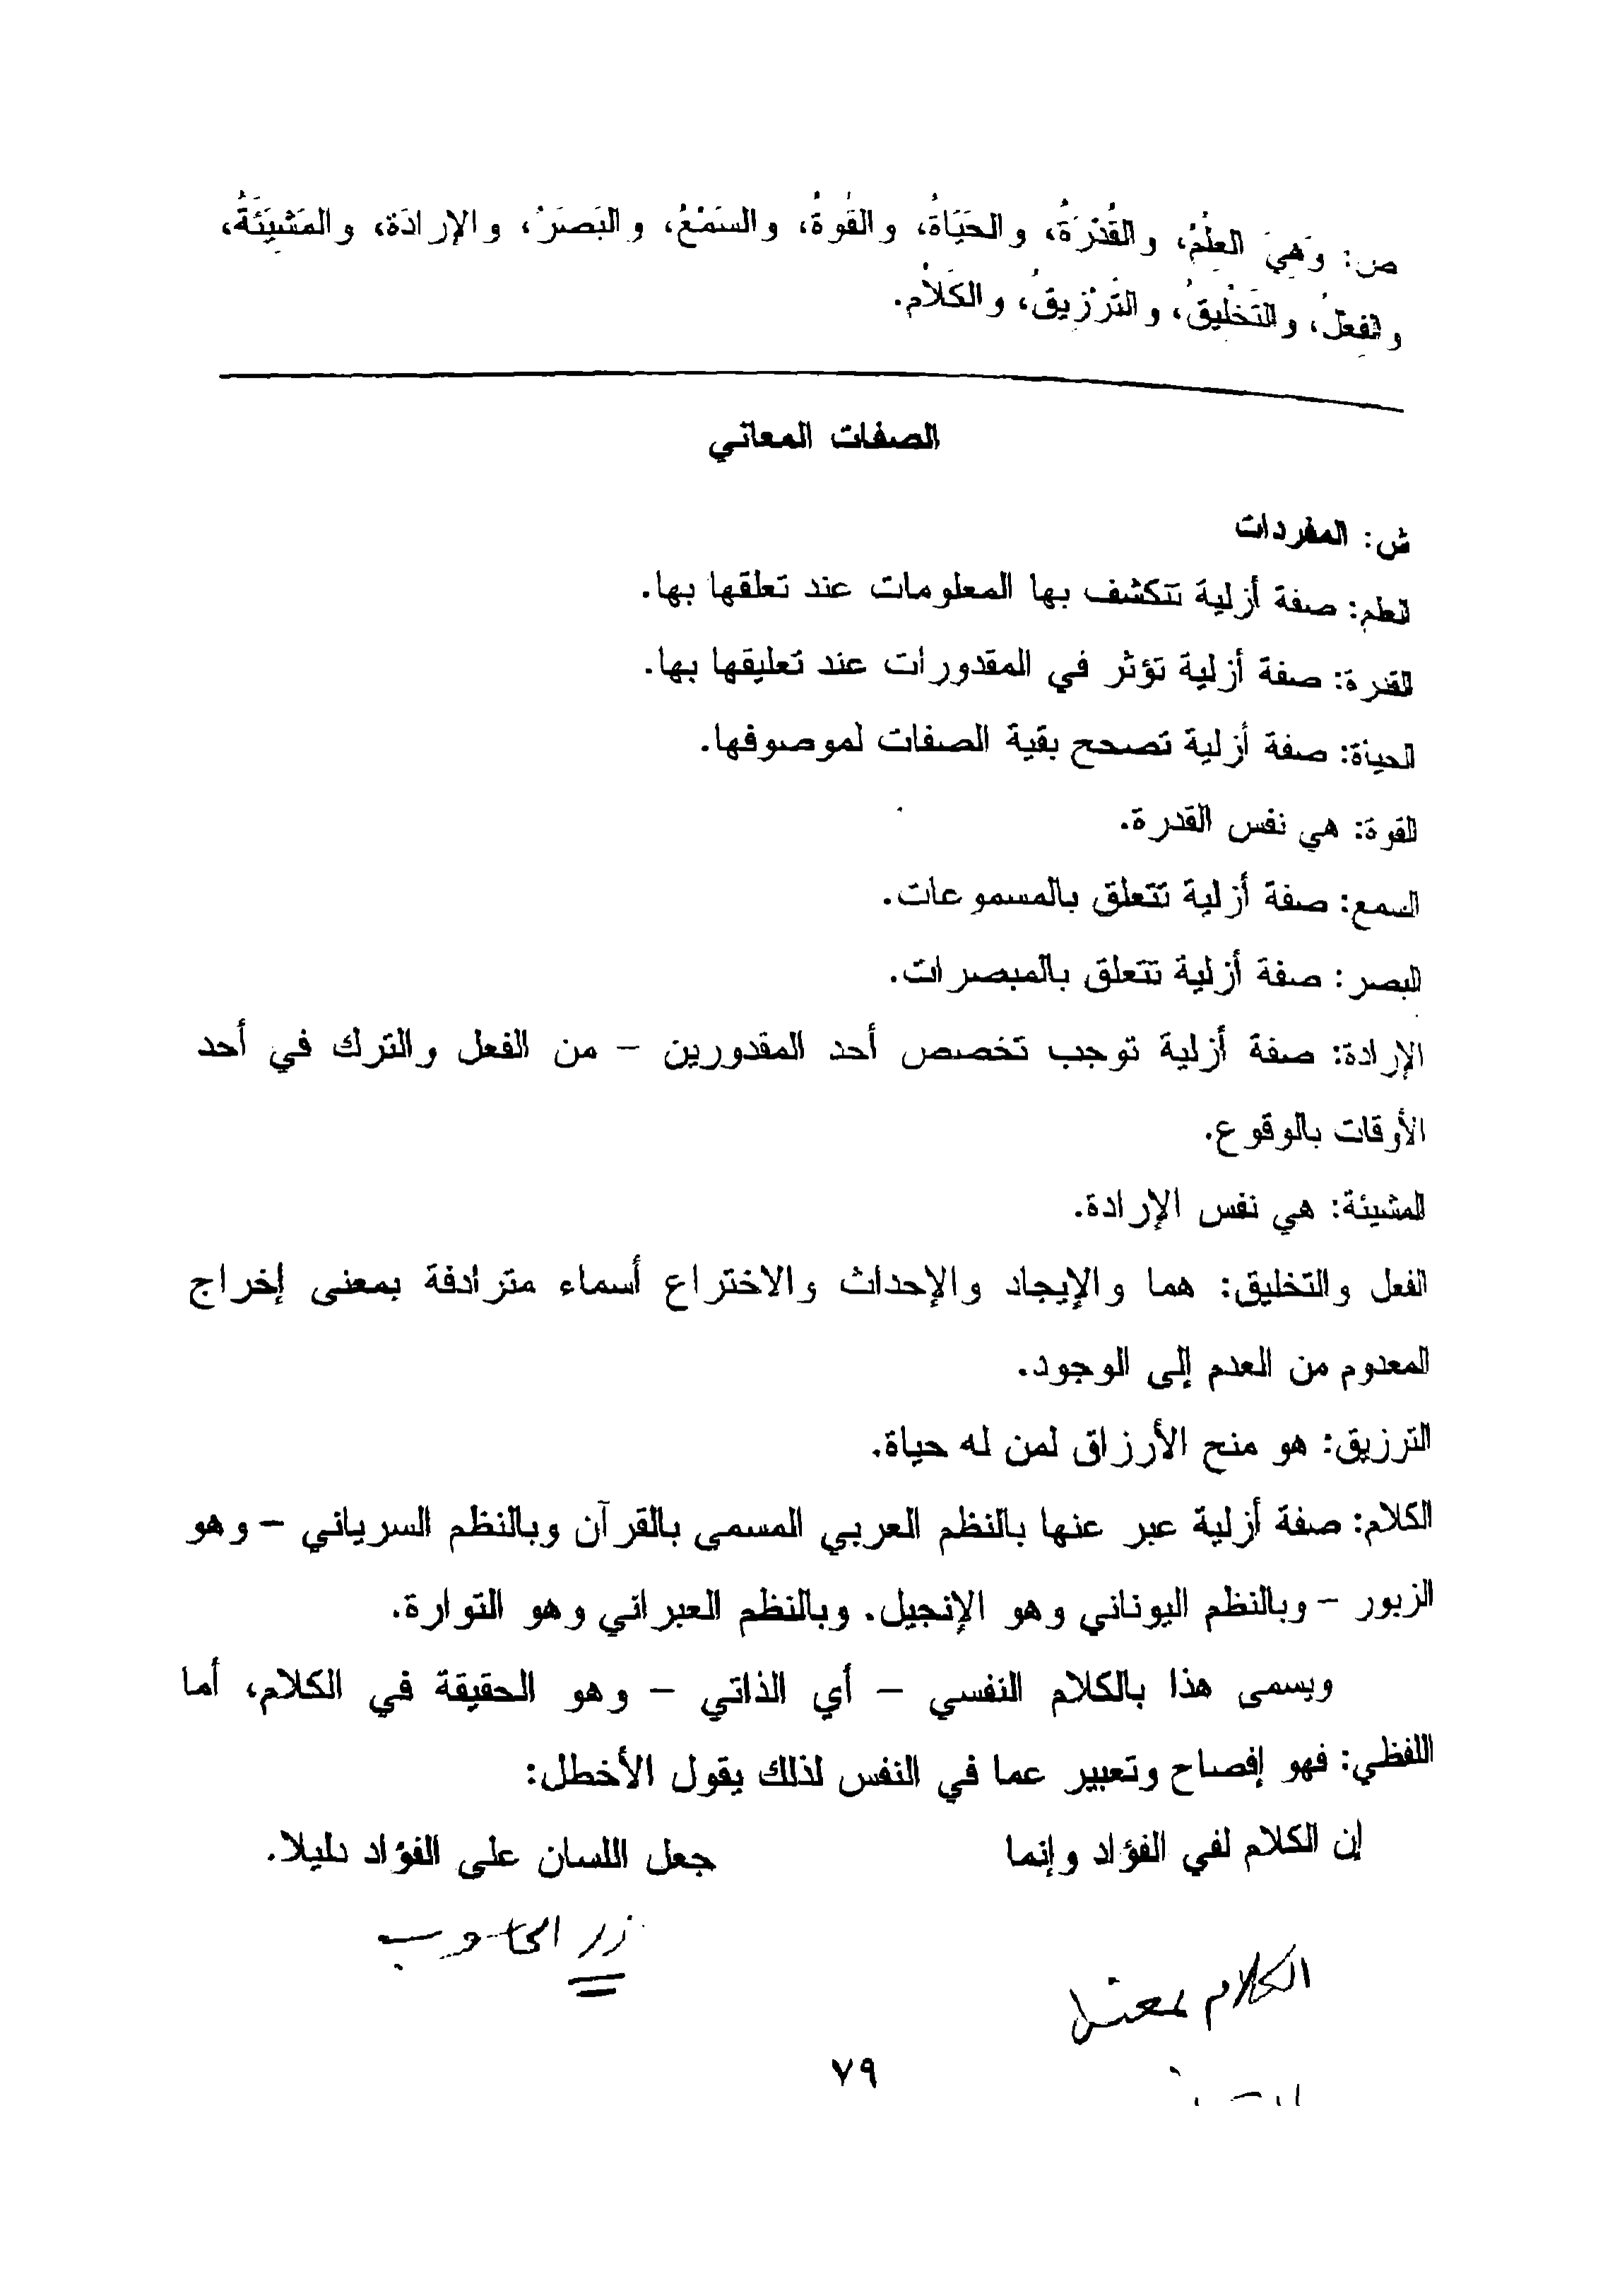 ص: وَهِيَ العِلْمُ، والقُدْرَةُ، والحَيَاةُ، والقُوةُ، والسَمْعُ، والبَصَرُ، والإرادَة، والمَشيَئَةُ،
والفِعلُ، والتَخْلِيقُ، والتَرْزِيقُ، والكَلَامُ.
الصفات المعاني
ش: المفردات
العلم: صفة أزلية تتكشف بها المعلومات عند تعلقها بها.
القدرة: صفة أزلية تؤثر في المقدورات عند تعليقها بها.
الحياة: صفة أزلية تصحح بقية الصفات لموصوفها.
القوة: هي نفس القدرة.
السمع: صفة أزلية تتعلق بالمسموعات.
البصر: صفة أزلية تتعلق بالمبصرات.
الإرادة: صفة أزلية توجب تخصص أحد المقدورين – من الفعل والترك في أحد
الأوقات بالوقوع.
المشيئة: هي نفس الإرادة.
الفعل والتخليق: هما والإيجاد والإحداث والاختراع أسماء مترادفة بمعنى إخراج
المعدوم من العدم إلى الوجود.
الترزيق: هو منح الأرزاق لمن له حياة.
الكلام: صفة أزلية عبر عنها بالنظم العربي المسمى بالقرآن وبالنظم السرياني – وهو
الزبور – وبالنظم اليوناني وهو الإنجيل. وبالنظم العبراني وهو التوارة.
ويسمى هذا بالكلام النفسي – أي الذاتي – وهو الحقيقة في الكلام، أما
اللفظي: فهو إفصاح وتعبير عما في النفس لذلك يقول الأخطل:
إن الكلام لفي الفؤاد وإنما جعل اللسان على الفؤاد دليلا.
الكلام
٧٩